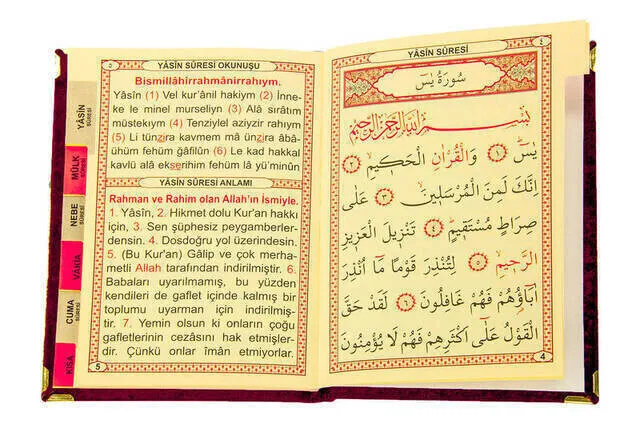 ٤
YÂSÎN SÛRESİ
سُورَةُ يٰسٓ
بِسْمِ اللّٰهِ الرَّحْمٰنِ الرَّحِيمِ
يٰسٓ ﴿١﴾ وَالْقُرْاٰنِ الْحَكٖيمِ ﴿٢﴾
اِنَّكَ لَمِنَ الْمُرْسَلٖينَ ﴿٣﴾ عَلٰى
صِرَاطٍ مُسْتَقٖيمٍ ﴿٤﴾ تَنْزٖيلَ الْعَزٖيزِ
الرَّحٖيمِ ﴿٥﴾ لِتُنْذِرَ قَوْمًا مَٓا اُنْذِرَ
اٰبَٓاؤُ۬هُمْ فَهُمْ غَافِلُونَ ﴿٦﴾ لَقَدْ حَقَّ
الْقَوْلُ عَلٰٓى اَكْثَرِهِمْ فَهُمْ لَا يُؤْمِنُونَ
4
٥
YÂSÎN SÛRESİ OKUNUŞU
Bismillâhirrahmânirrahıym.
Yâsîn (1) Vel kur'ânil hakiym (2) İnne-
ke le minel murseliyn (3) Alâ sırâtım
müstekıym (4) Tenziylel aziyzir rahıym
(5) Li tünzira kavmem mâ ünzira âbâ-
ühüm fehüm ğafilûn (6) Le kad hakkal
kavlü alâ ekserihim fehüm lâ yü'minûn
YÂSÎN SÛRESİ ANLAMI
Rahman ve Rahim olan Allah'ın İsmiyle.
1. Yâsîn, 2. Hikmet dolu Kur'an hakkı
için, 3. Sen şüphesiz peygamberler-
densin. 4. Dosdoğru yol üzerindesin.
5. (Bu Kur'an) Gâlip ve çok merha-
metli Allah tarafından indirilmiştir. 6.
Babaları uyarılmamış, bu yüzden
kendileri de gaflet içinde kalmış bir
toplumu uyarman için indirilmiş-
tir. 7. Yemin olsun ki onların çoğu
gafletlerinin cezasını hak etmişler-
dir. Çünkü onlar îmân etmiyorlar.
5
YÂSÎN
SÛRESİ
MÜLK
SÛRESİ
NEBE
SÛRESİ
VÂKIA
CUMA
SÛRESİ
KISA